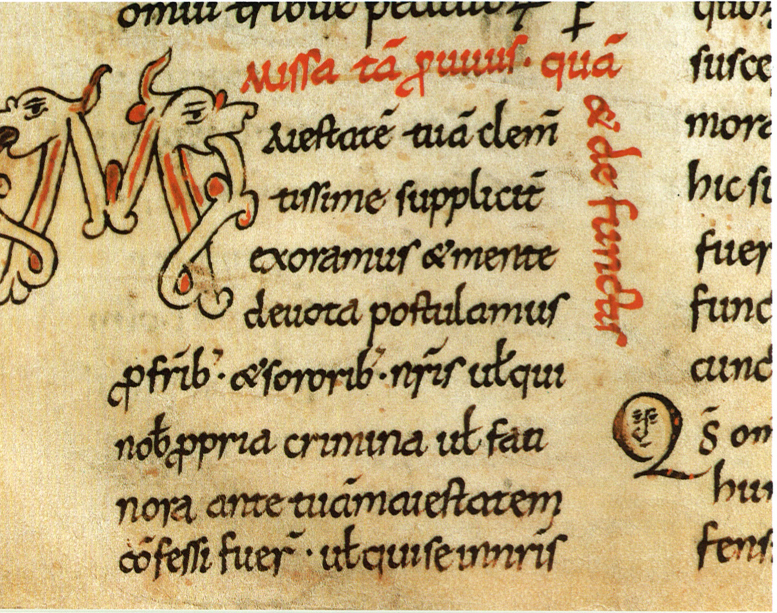 omni tribue
Missa tā ꝓ uiuis · quā
& de functis
MAiestatē tuā clem̄
tissime supplicit̄
exoramus & mente
deuota postulamus
ꝓ frīb' · & sororib' · nr̄is ul̄ qui
nob̄ ꝓpria crimina ul̄ faci
nora ante tuā maiestatem
cōfessi fuer̄ · ul̄ qui se in nr̄is
susce
mora
hic si
fuer
func
cunc
Qs̄ om
hui
fens